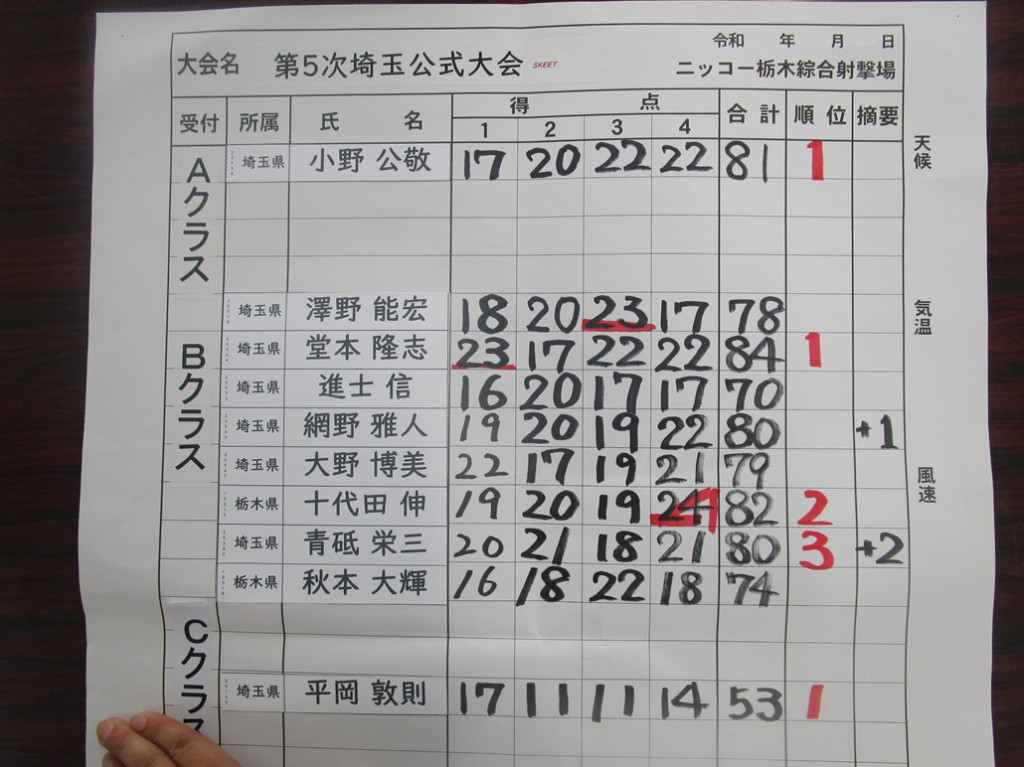 令和 年 月 日
大会名 第5次埼玉公式大会 SKEET ニッコー栃木綜合射撃場
受付 所属 氏 名 得 点 合計 順位 摘要
1 2 3 4
天候
Aクラス
埼玉県 小野 公敬 17 20 22 22 81 1
気温
Bクラス
埼玉県 澤野 能宏 18 20 23 17 78
埼玉県 堂本 隆志 23 17 22 22 84 1
埼玉県 進士 信 16 20 17 17 70
埼玉県 網野 雅人 19 20 19 22 80 +1
埼玉県 大野 博美 22 17 19 21 79
風速
栃木県 十代田 伸 19 20 19 24 82 2
埼玉県 青砥 栄三 20 21 18 21 80 3 +2
栃木県 秋本 大輝 16 18 22 18 74
Cクラス
埼玉県 平岡 敦則 17 11 11 14 53 1